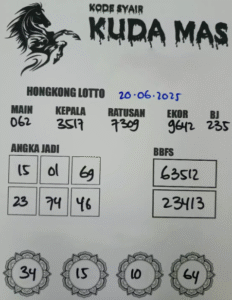 KODE SYAIR
KUDA MAS
HONGKONG LOTTO 20-06-2025
MAIN KEPALA RATUSAN EKOR BJ
062 3517 7309 9642 235
ANGKA JADI BBFS
15 01 69 63512
23 74 46 23413
34 15 10 64